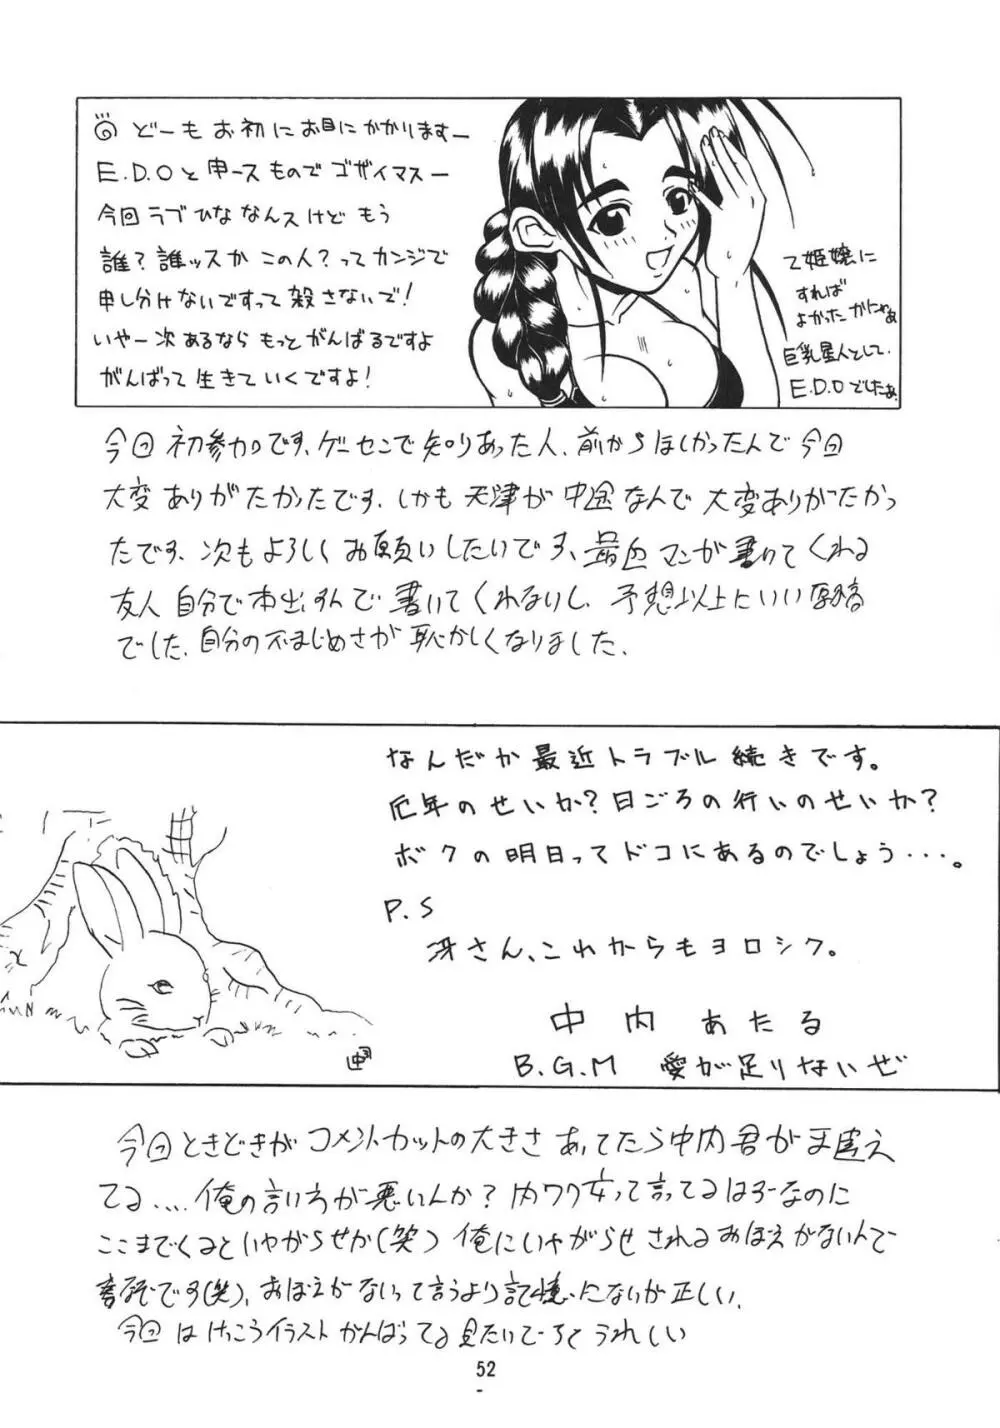 どーも お初に お目に かかりますー
E.D.Oと申ース ものでゴザイマスー
今回 ラブひな なんスけど もう
誰？誰ッスか この人？って カンジで
申し分けないですって 殺さないで！
いやー 次 あるなら もっと がんばるですよ
がんばって 生きて いくですよ！
乙姫嬢に
すれば
よかったかにゃあ
巨乳星人として.
E.D.Oでしたぁ.
今回 初参加です、ゲーセンで知りあった人、前からほしかったんで今回
大変ありがたかったです、しかも天津が中途なんで大変ありがたかっ
たです、次もよろしくお願いしたいです、最近マンが書いてくれる
友人 自分で本出すんで書いてくれないし、予想以上にいい原稿
でした、自分の不まじめさが恥かしくなりました、
なんだか最近トラブル続きです。
厄年のせいか？日ごろの行いのせいか？
ボクの明日ってドコにあるのでしょう・・・。
P.S
冴さん、これからもヨロシク。
中内 あたる
B.G.M 愛が足りないぜ
今回ときどきがコメントカットの大きさ あってたら中内君がま違え
てる.... 俺の言い方が悪いんか？内ワク
って言ってるはずーなのに
ここまでくるといやがらせか(笑) 俺にいやがらせされるおぼえがないんで
なぞです(笑)、おぼえがないって言うより記憶にないが正しい、
今回はけっこうイラストがんばってる見たいでーちとうれしい
52